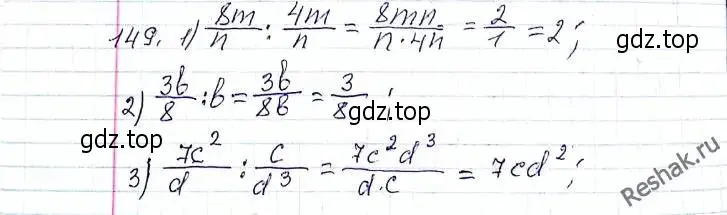 149. 1) 8m/n : 4m/n = 8mn/n·4n = 2/1 = 2;
гдз.top
2) 3b/8 : b = 3b/8b = 3/8;
гдз.top гдз.top
3) 7c²/d : c/d³ = 7c²d³/d·c = 7cd²;
Reshak.ru